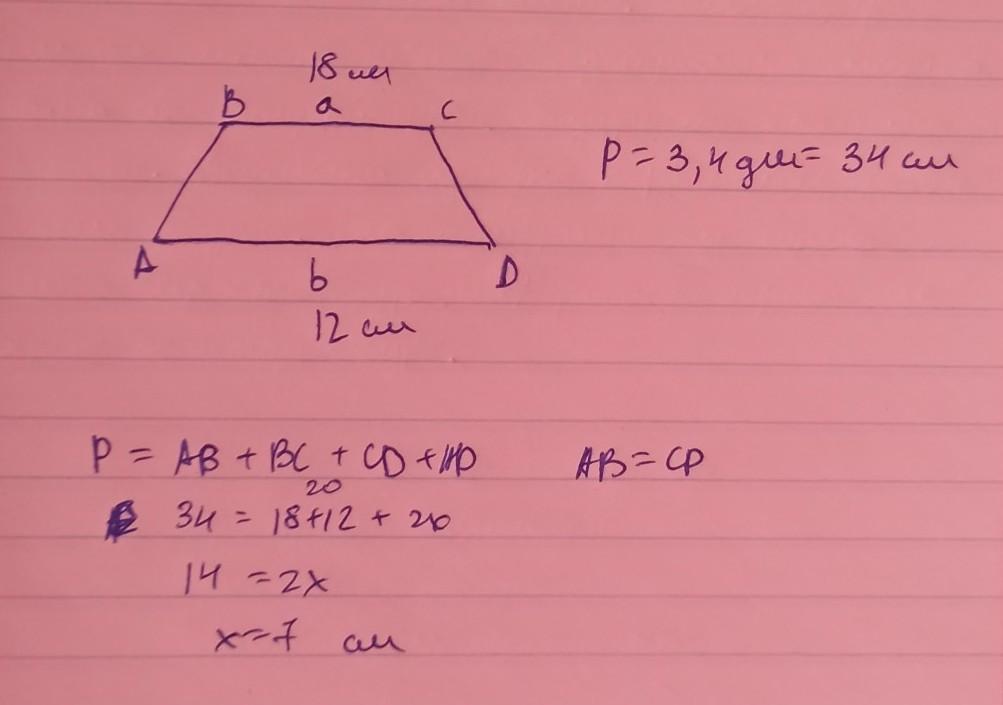 18 см
B a C
P = 3,4 дм = 34 см
A b D
12 см
P = AB + BC + CD + AD AB = CD
20
34 = 18+12 + 2x
14 = 2x
x = 7 см